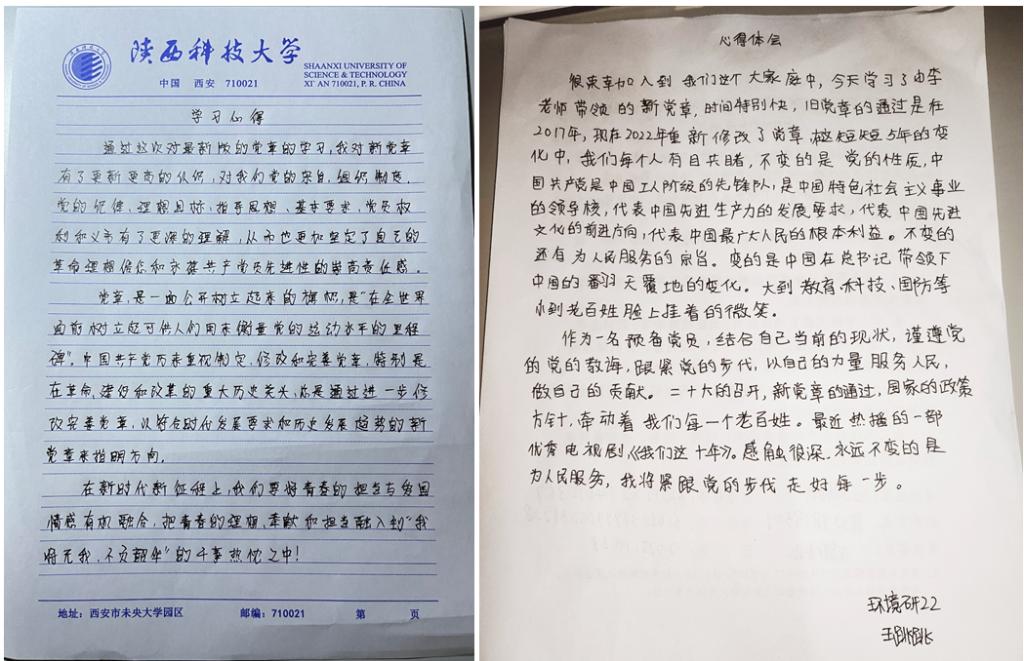 陕西科技大学
SHAANXI UNIVERSITY OF
SCIENCE & TECHNOLOGY
XI' AN 710021, P. R. CHINA
中国 西安 710021
学习心得
通过这次对最新版的党章的学习,我对新党章
有了更新更高的认识,对我们党的宗旨、组织制度、
党的纪律、理想目标、指导思想、基本要求、党员权
利和义务有了更深的理解,从而也更加坚定了自己的
革命理想信念和永葆共产党员先进性的崇高责任感。
党章,是一面公开树立起来的旗帜,是“在全世界
面前树立起可供人们用来衡量党的运动水平的里程
碑”。中国共产党历来重视制定、修改和完善党章,特别是
在革命、建设和改革的重大历史关头,总是通过进一步修
改完善党章,以符合时代发展要求和历史发展趋势的新
党章来指明方向。
在新时代新征程上,我们要将青春的担当与爱国
情感有机融合,把青春的理想、奉献和担当融入到“我
将无我,不负韶华”的干事热忱之中!
地址:西安市未央大学园区 邮编:710021 第 页
心得体会
很荣幸加入到我们这个大家庭中,今天学习了由李
老师带领的新党章,时间特别快,旧党章的通过是在
2017年,现在2022年重新修改了党章,短短5年的变
化中,我们每个人有目共睹,不变的是党的性质,中
国共产党是中国工人阶级的先锋队,是中国特色社会主义事业
的领导核,代表中国先进生产力的发展要求,代表中国先进
文化的前进方向,代表中国最广大人民的根本利益。不变的
还有为人民服务的宗旨。变的是中国在总书记带领下
中国的翻天覆地的变化。大到教育、科技、国防等
小到老百姓脸上挂着的微笑。
作为一名预备党员,结合自己当前的现状,谨遵党
的党的教诲,跟紧党的步伐,以自己的力量服务人民,
做自己的贡献。二十大的召开,新党章的通过,国家的政策
方针,牵动着我们每一个老百姓。最近热播的一部
优秀电视剧《我们这十年》。感触很深,永远不变的是
为人民服务,我将紧跟党的步伐走好每一步。
环境研22